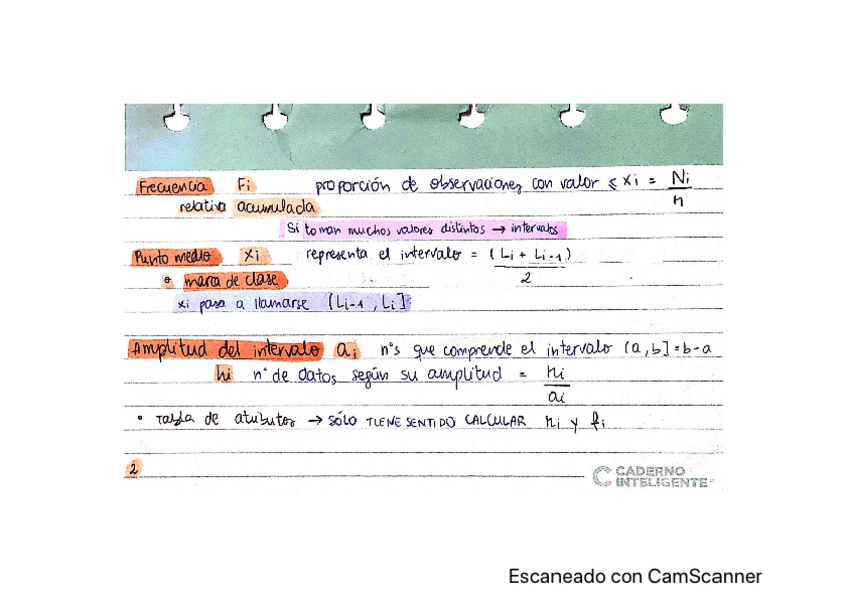 Frecuencia Fi proporción de observaciones con valor ⩽ xi = Ni / n
relativa acumulada
Si toman muchos valores distintos → intervalos
Punto medio xi representa el intervalo = (Li + Li-1) / 2
o marca de clase
xi pasa a llamarse (Li-1, Li]
Amplitud del intervalo ai nºs que comprende el intervalo (a,b] = b-a
hi nº de datos según su amplitud = ni / ai
• Tabla de atributos → SÓLO TIENE SENTIDO CALCULAR ni y fi
2
CADERNO
INTELIGENTE
Escaneado con CamScanner